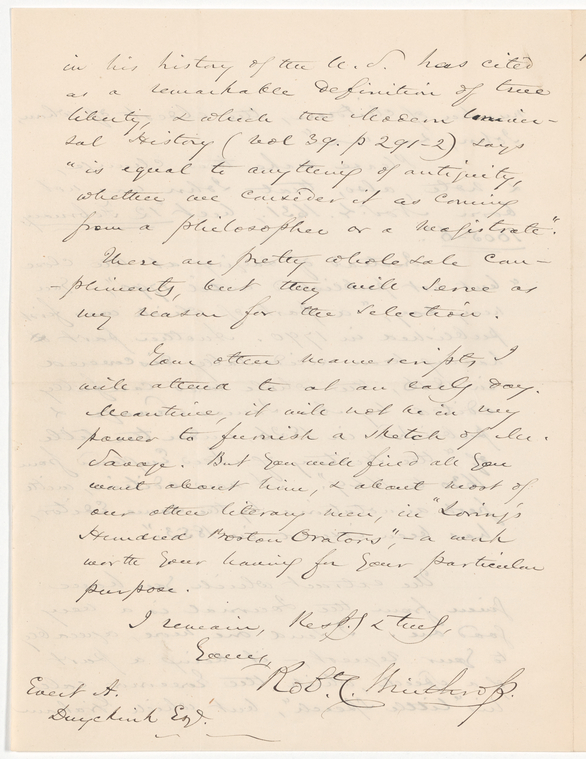 in his history of the U. S. has cited
as a remarkable definition of true
liberty, & which the Modern Univer-
sal History (vol 39. p 291-2) says
"is equal to anything of antiquity,
whether we consider it as coming
from a philosopher or a magistrate".
These are pretty wholesale com-
-pliments, but they will serve as
my reason for the selection.
Your other manuscripts, I
will attend to at an early day.
Meantime, it will not be in my
power to furnish a sketch of Mr.
Savage. But you will find all you
want about him, & about most of
our other literary men, in "Loring's
Hundred Boston Orators", - a work
worth your having for your particular
purpose.
I remain, Respy & truly,
Yours,
Robt. C. Winthrop.
Evert A.
Duyckink Esq.